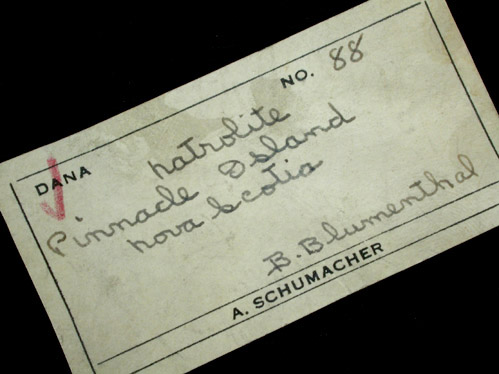 DANA NO. 88
natrolite
Pinnacle Island
nova Scotia
B. Blumenthal
A. SCHUMACHER